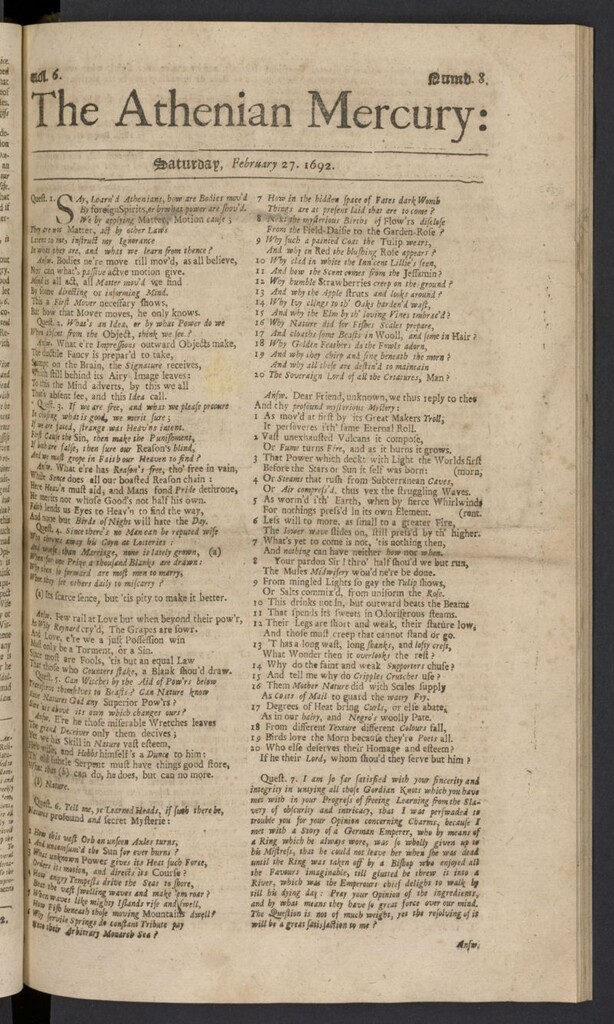 Vol. 6.
Numb. 8.
The Athenian Mercury:
Saturday, February 27. 1692.
Quest. 1. SAy, Learn'd Athenians, how are Bodies mov'd
By foreign Spirits, or by what power are shov'd.
We by applying Matter, Motion cause;
They are not Matter, act by other Laws
Learnt to me, instruct my Ignorance
In what they are, and what we learn from thence?
Answ. Bodies ne're move till mov'd, as all believe,
Nor can what's passive active motion give.
Mind is all act, all Matter mov'd we find
By some directing or informing Mind.
This a First Mover necessary shows,
But how that Mover moves, he only knows.
Quest. 2. What's an Idea, or by what Power do we
When absent from the Object, think we see?
Answ. What e're Impressions outward Objects make,
The ductile Fancy is prepar'd to take,
Stampt on the Brain, the Signature receives,
Which still behind its Airy Image leaves:
To this the Mind adverts, by this we all
That's absent see, and this Idea call.
Quest. 3. If we are free, and what we please procure
In chusing what is good, we merit sure;
If we are forc'd, strange was Heav'ns intent.
First Cause the Sin, then make the Punishment,
If both are false, then sure our Reason's blind,
And we must grope in Faith our Heaven to find?
Answ. What e're has Reason's free, tho' free in vain,
While Sence does all our boasted Reason chain:
Here Heav'n must aid, and Mans fond Pride dethrone,
He merits not whose Good's not half his own.
Faith lends us Eyes to Heav'n to find the way,
And none but Birds of Night will hate the Day.
Quest. 4. Since there's no Man can be reputed wise
Who throws away his Coyn at Lotteries:
And worse than Marriage, none is lately grown, (a)
When for one Prize a thousand Blanks are drawn:
Why then so forward are most men to marry,
When they see others daily to miscarry?
(a) Its scarce sence, but 'tis pity to make it better.
Answ. Few rail at Love but when beyond their pow'r,
As Wily Reynard cry'd, The Grapes are sowr.
And Love, e're we a just Possession win
Must only be a Torment, or a Sin.
Since most are Fools, 'tis but an equal Law
That those who Counters stake, a Blank shou'd draw.
Quest. 5. Can Witches by the Aid of Pow'rs below
Transform themselves to Beasts? Can Nature know
Save Natures God any Superior Pow'rs?
above its own which changes ours?
Answ. E're he those miserable Wretches leaves
The grand Deceiver only them decives;
Yet we his Skill in Nature vast esteem,
and Hobbs himself's a Dunce to him:
old subtle Serpent must have things good store,
What this (b) can do, he does, but can no more.
(b) Nature.
Quest. 6. Tell me, ye Learned Heads, if such there be,
Natures profound and secret Mysterie:
1 How this vast Orb on unseen Axles turns,
2 And unconsum'd the Sun for ever burns?
3 What unknown Power gives its Heat such Force,
Orders its motion, and directs its Course?
4 How angry Tempests drive the Seas to shore,
Beat the vast swelling waves and make 'em roar?
5 When waves like mighty Islands rise and swell,
How Fish beneath those moving Mountains dwell?
6 Why fertile Springs do constant Tribute pay
Unto their Arbitrary Monarch Sea?
7 How in the hidden space of Fates dark Womb
Things are as present laid that are to come?
8 Next the mysterious Births of Flow'rs disclose
From the Field-Daisie to the Garden-Rose?
9 Why such a painted Coat the Tulip wears,
And why in Red the blushing Rose appears?
10 Why clad in White the Inn'cent Lillie's seen,
11 And how the Scent comes from the Jessamin?
12 Why humble Strawberries creep on the ground?
13 And why the Apple struts and looks around?
14 Why Ivy clings to th' Oaks harden'd wast,
15 And why the Elm by th' loving Vines embrac'd?
16 Why Nature did for Fishes Scales prepare,
17 And cloaths some Beasts in Wooll, and some in Hair?
18 Why Golden Feathers do the Fowls adorn,
19 And why they chirp and sing beneath the morn?
And why all these are destin'd to maintain
20 The Sovereign Lord of all the Creatures, Man?
Answ. Dear Friend, unknown, we thus reply to thee
And thy profound mysterious Mistery:
1 As mov'd at first by 'its Great Makers Troll,
It perseveres i'th' same Eternal Roll.
2 Vast unexhausted Vulcans it compose,
Or Fume turns Fire, and as it burns it grows.
3 That Power which deckt with Light the Worlds first
Before the Stars or Sun it self was born: (morn,
4 Or Steams that rush from Subterranean Caves,
Or Air compress'd, thus vex the struggling Waves.
5 As worm'd i'th' Earth, when by fierce Whirlwinds
For nothings press'd in its own Element. (rent.
6 Less will to more, as small to a greater Fire,
The lower wave slides on, still press'd by th' higher.
7 What's yet to come is not, 'tis nothing then,
And nothing can have neither how nor when.
8 Your pardon Sir! thro' half shou'd we but run,
The Muses Midwifery wou'd ne're be done.
9 From mingled Lights so gay the Tulip shows,
Or Salts commix'd, from uniform the Rose.
10 This drinks not in, but outward beats the Beams
11 That spends its sweats in Odoriferous steams.
12 Their Legs are short and weak, their stature low,
And those must creep that cannot stand or go.
13 'T has a long wast, long shanks, and lofty crest,
What Wonder then it overlooks the rest?
14 Why do the faint and weak Supporters chuse?
15 And tell me why do Cripples Crutches use?
16 Them Mother Nature did with Scales supply
As Coats of Mail to guard the watry Fry.
17 Degrees of Heat bring Curls, or else abate,
As in our hairy, and Negro's woolly Pate.
18 From different Texture different Colours fall,
19 Birds love the Morn because they're Poets all.
20 Who else deserves their Homage and esteem?
If he their Lord, whom shou'd they serve but him?
Quest. 7. I am so far satisfied with your sincerity and
integrity in untying all those Gordian Knots which you have
met with in your Progress of freeing Learning from the Sla-
very of obscurity and intricacy, that I was perswaded to
trouble you for your Opinion concerning Charms, because I
met with a Story of a German Emperer, who by means of
a Ring which he always wore, was so wholly given up to
his Mistress, that he could not leave her when she was dead
until the Ring was taken off by a Bishop who enjoyed all
the Favours imaginable, till glutted he threw it into a
River, which was the Emperours chief delight to walk by
till his dying day: Pray your Opinion of the ingredients,
and by what means they have so great force over our mind.
The Question is not of much weight, yet the resolving of it
will be a great satisfaction to me?
Answ.